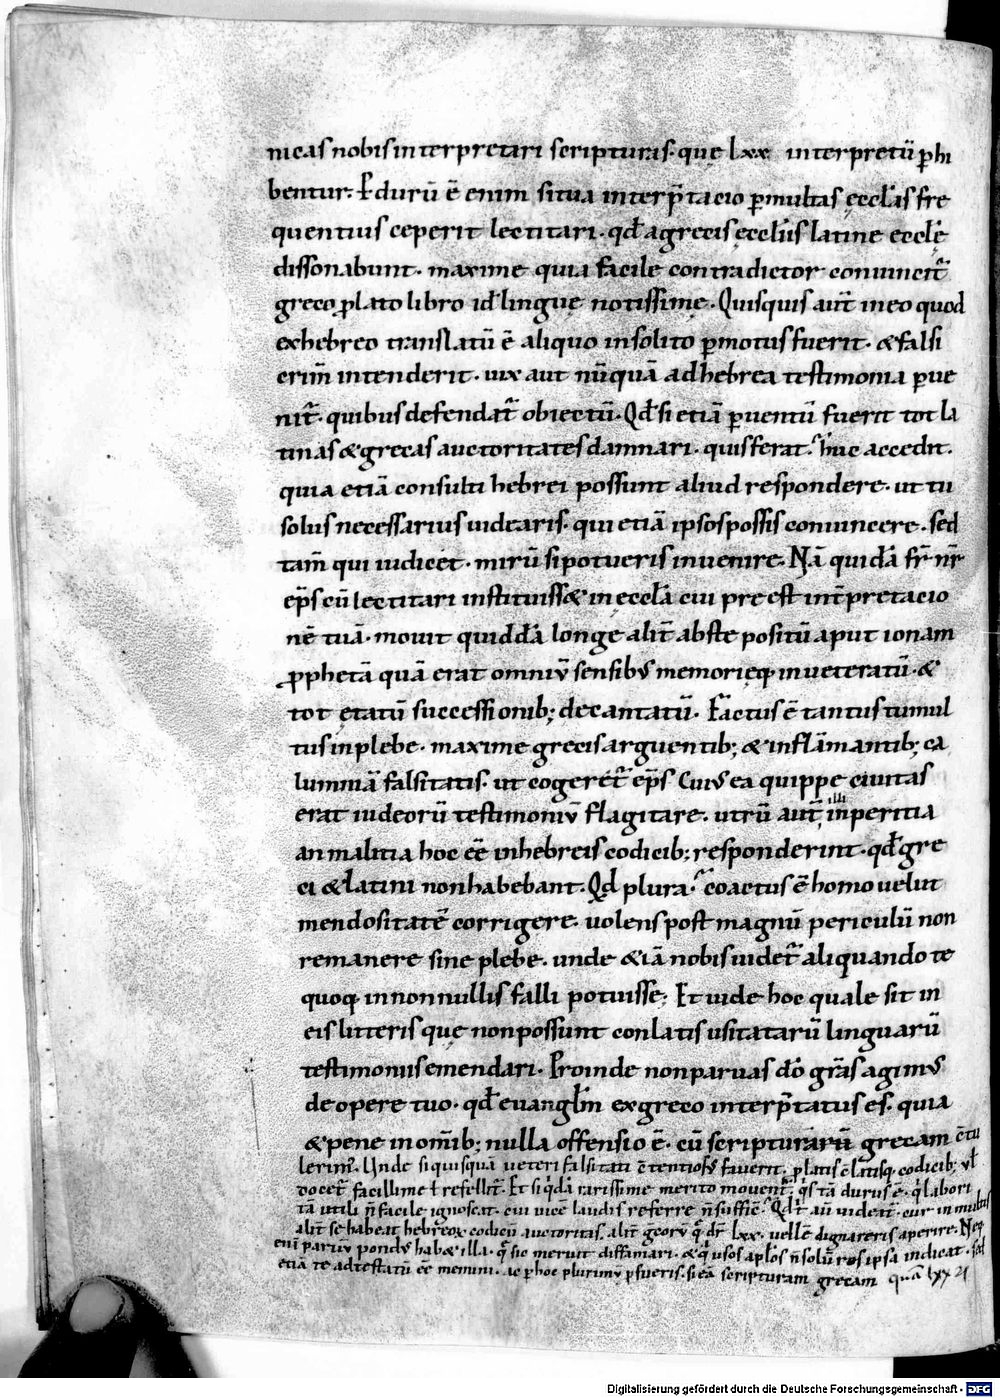 nicas nobis interpretari scripturas· quę lxx interpretū phi
bentur· P̄durū ē enim si tua interp̄tacio p̱multas ęccl̄as fre
quentius ceperit lectitari· qd̄ a grecis ęccl̄iis latine eccl̄ę
dissonabunt· maxime quia facile contradictor conuincit̄
greco p̱lato libro id̄ linguę notissimę· Quisquis aut̄ in eo quod
ex hebreo translatū ē aliquo insolito p̱motus fuerit· & falsi
crim̄ intenderit· uix aut nūquā ad hebrea testimonia p̱ue
nit̄· quibus defendat̄ obiectū· Qd̄ si etiā p̱uentū fuerit tot la
tinas & grecas auctoritates damnari· quis ferat· huc accedit·
quia etiā consulti hebrei possunt aliud respondere· ut tu
solus necessarius uidearis· qui etiā ipsos possis conuincere· sed
tam̄ qui iudicet· mirū si potueris inuenire· Nā quidā fr̄ nr̄
ep̄s cū lectitari instituiss& in eccl̄a cui pre est int̄pretacio
nē tuā· mouit quiddā longe alit̄ abs te positū aput ionam
p̱phetā quā erat omniū sensibus memorięq; inueteratū· &
tot ętatū successionib; decantatū· Factus ē tantus tumul
tus in plebe· maxime grecis arguentib; & inflāmantib; ca
lumniā falsitatis· ut cogeret̄ ep̄s Cuius ea quippe ciuitas
erat iudeorū testimoniū flagitare· utrū aut̄ inperitia
an malitia hoc ēē in hebreis codicib; responderint· qd̄ gre
ci & latini non habebant· Qd plura· coactus ē homo uelut
mendositatē corrigere· uolens post magnū periculū non
remanere sine plebe· unde &iā nobis uidet̄ aliquando te
quoq; in nonnullis falli potuisse; Et uide hoc quale sit in
eis litteris quę non possunt conlatis usitatarū linguarū
testimoniis emendari· Proinde non paruas dō grā̄s agimus
de opere tuo· qd̄ euangl̄m ex greco interp̄tatus es· quia
& pene in om̄ib; nulla offensio ē· cū scripturarū grecam ctu
lerim̄· Unde si quisquā ueteri falsitati ctentiosus fauerit· p̱latis c̄latisq; codicib; ul̄
docet̄ facillime ł refellit̄· Et si qdā rarissime merito mouent̄· qs tā durus ē· q labori
tā utili n̄ facile ignoscat· cui uicē laudis referre n̄ suffic̄· Qd̄ t̄ aū uideat̄· cur in multis
alit̄ se habeat hebreoɤ codicū auctoritas· alit̄ grecoɤ q dr̄ lxx· uellē dignareris aperire· Neq;
enī paruū pondus hab& illa· q sic meruit diffamari· & q usos ap̄los n̄ solū res ipsa indicat· sed
etiā te adtestatū ēē memini· ac p̱ hoc plurimū p̱fueris· si eā scripturam grecam quā lxx